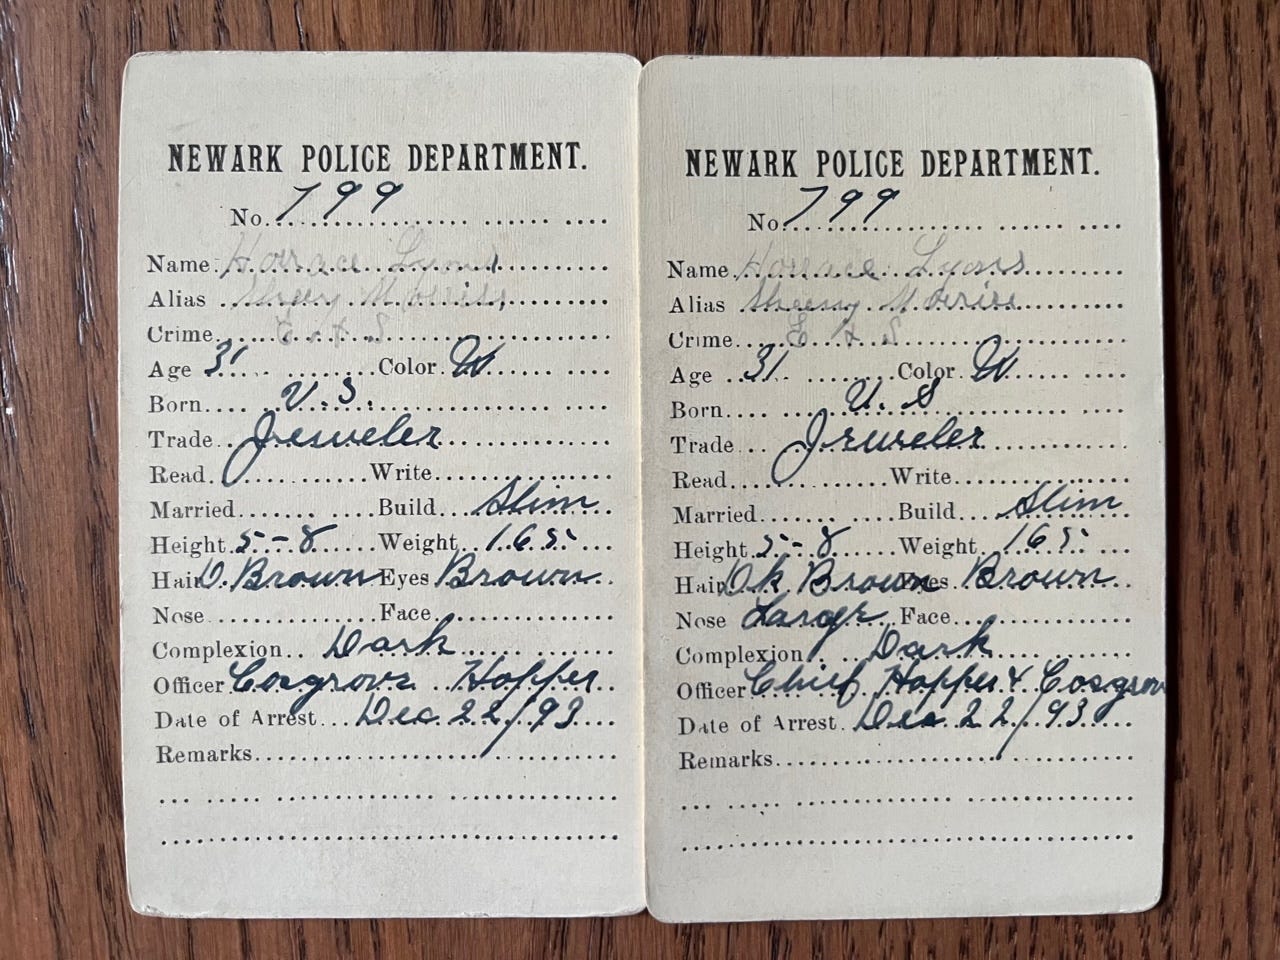 NEWARK POLICE DEPARTMENT.
No. 799
Name Horace Lyons
Alias Sheeny Morris
Crime E & S
Age 31 Color W
Born U.S.
Trade Jeweler
Read Write
Married Build Slim
Height 5-8 Weight 165
Hair D. Brown Eyes Brown
Nose Face
Complexion Dark
Officer Cosgrove Hopper
Date of Arrest Dec 22/93
Remarks
NEWARK POLICE DEPARTMENT.
No. 799
Name Horace Lyons
Alias Sheeny Morris
Crime E & S
Age 31 Color W
Born U. S
Trade Jeweler
Read Write
Married Build Slim
Height 5-8 Weight 165
Hair Dk Brown Eyes Brown
Nose Large Face
Complexion Dark
Officer Chief Hopper & Cosgrov
Date of Arrest Dec 22/93
Remarks